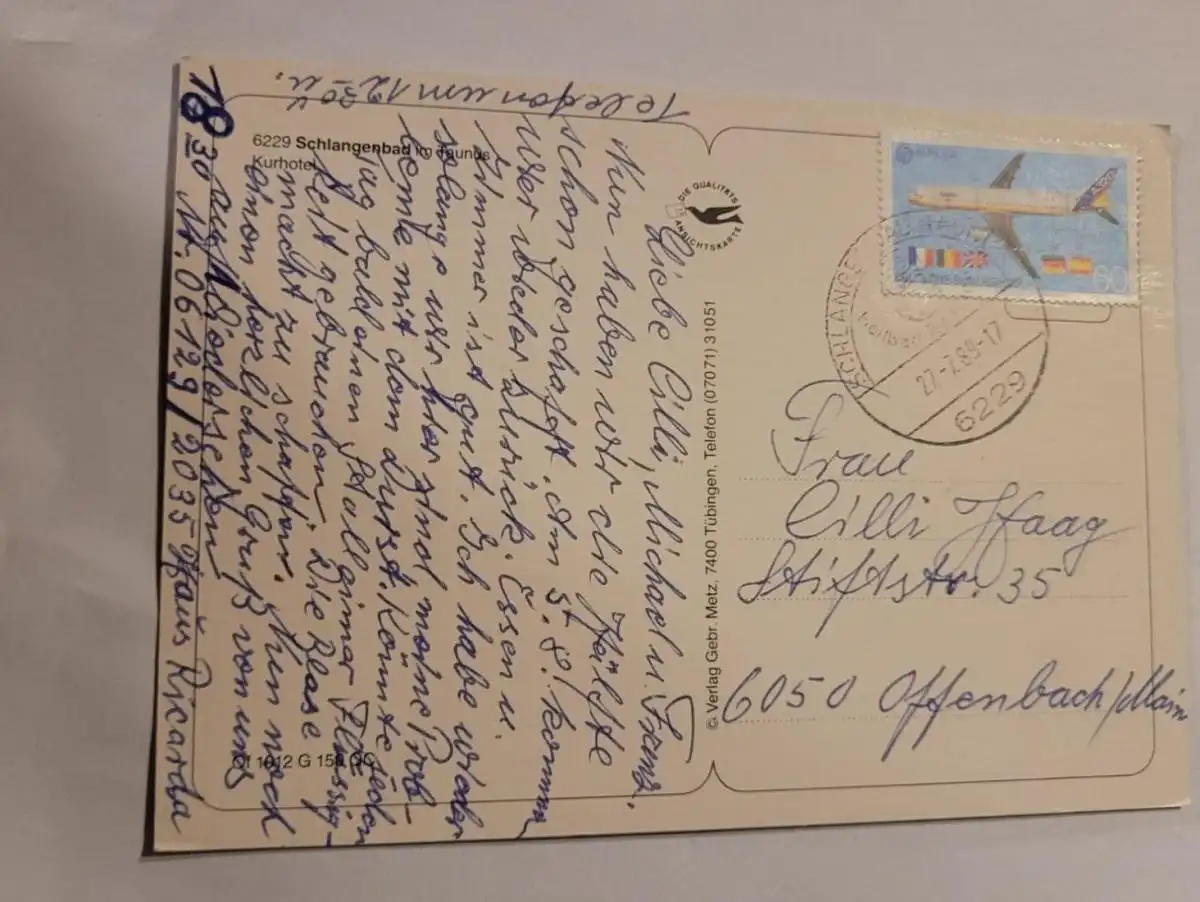 6229 Schlangenbad im Taunus
Kurhotel
Liebe Cilli, Michael u. Franz,
Nun haben wir die Hälfte
schon geschafft. Am 5.8. kommen
wir wieder zurück. Essen u.
Zimmer ist gut. Ich habe wieder
solange wir hier sind meine Prob-
leme mit dem Durst. Könnte jeden
Tag bald einen Stalleimer Flüssig-
keit gebrauchen. Die Blase
macht zu schaffen. Nun noch
einen herzlichen Gruß von uns
auf Wiedersehen
Telefon um 12 30 u.
18 30 u
Nr. 06129/2035 Haus Ricarda
DIE QUALITÄTS
ANSICHTSKARTE
© Verlag Gebr. Metz, 7400 Tübingen, Telefon (07071) 31051
EUROPA
80
SCHLANGENBAD
27.-7.89.-17
6229
Frau
Cilli Haag
Stiftstr. 35
6050 Offenbach/Main